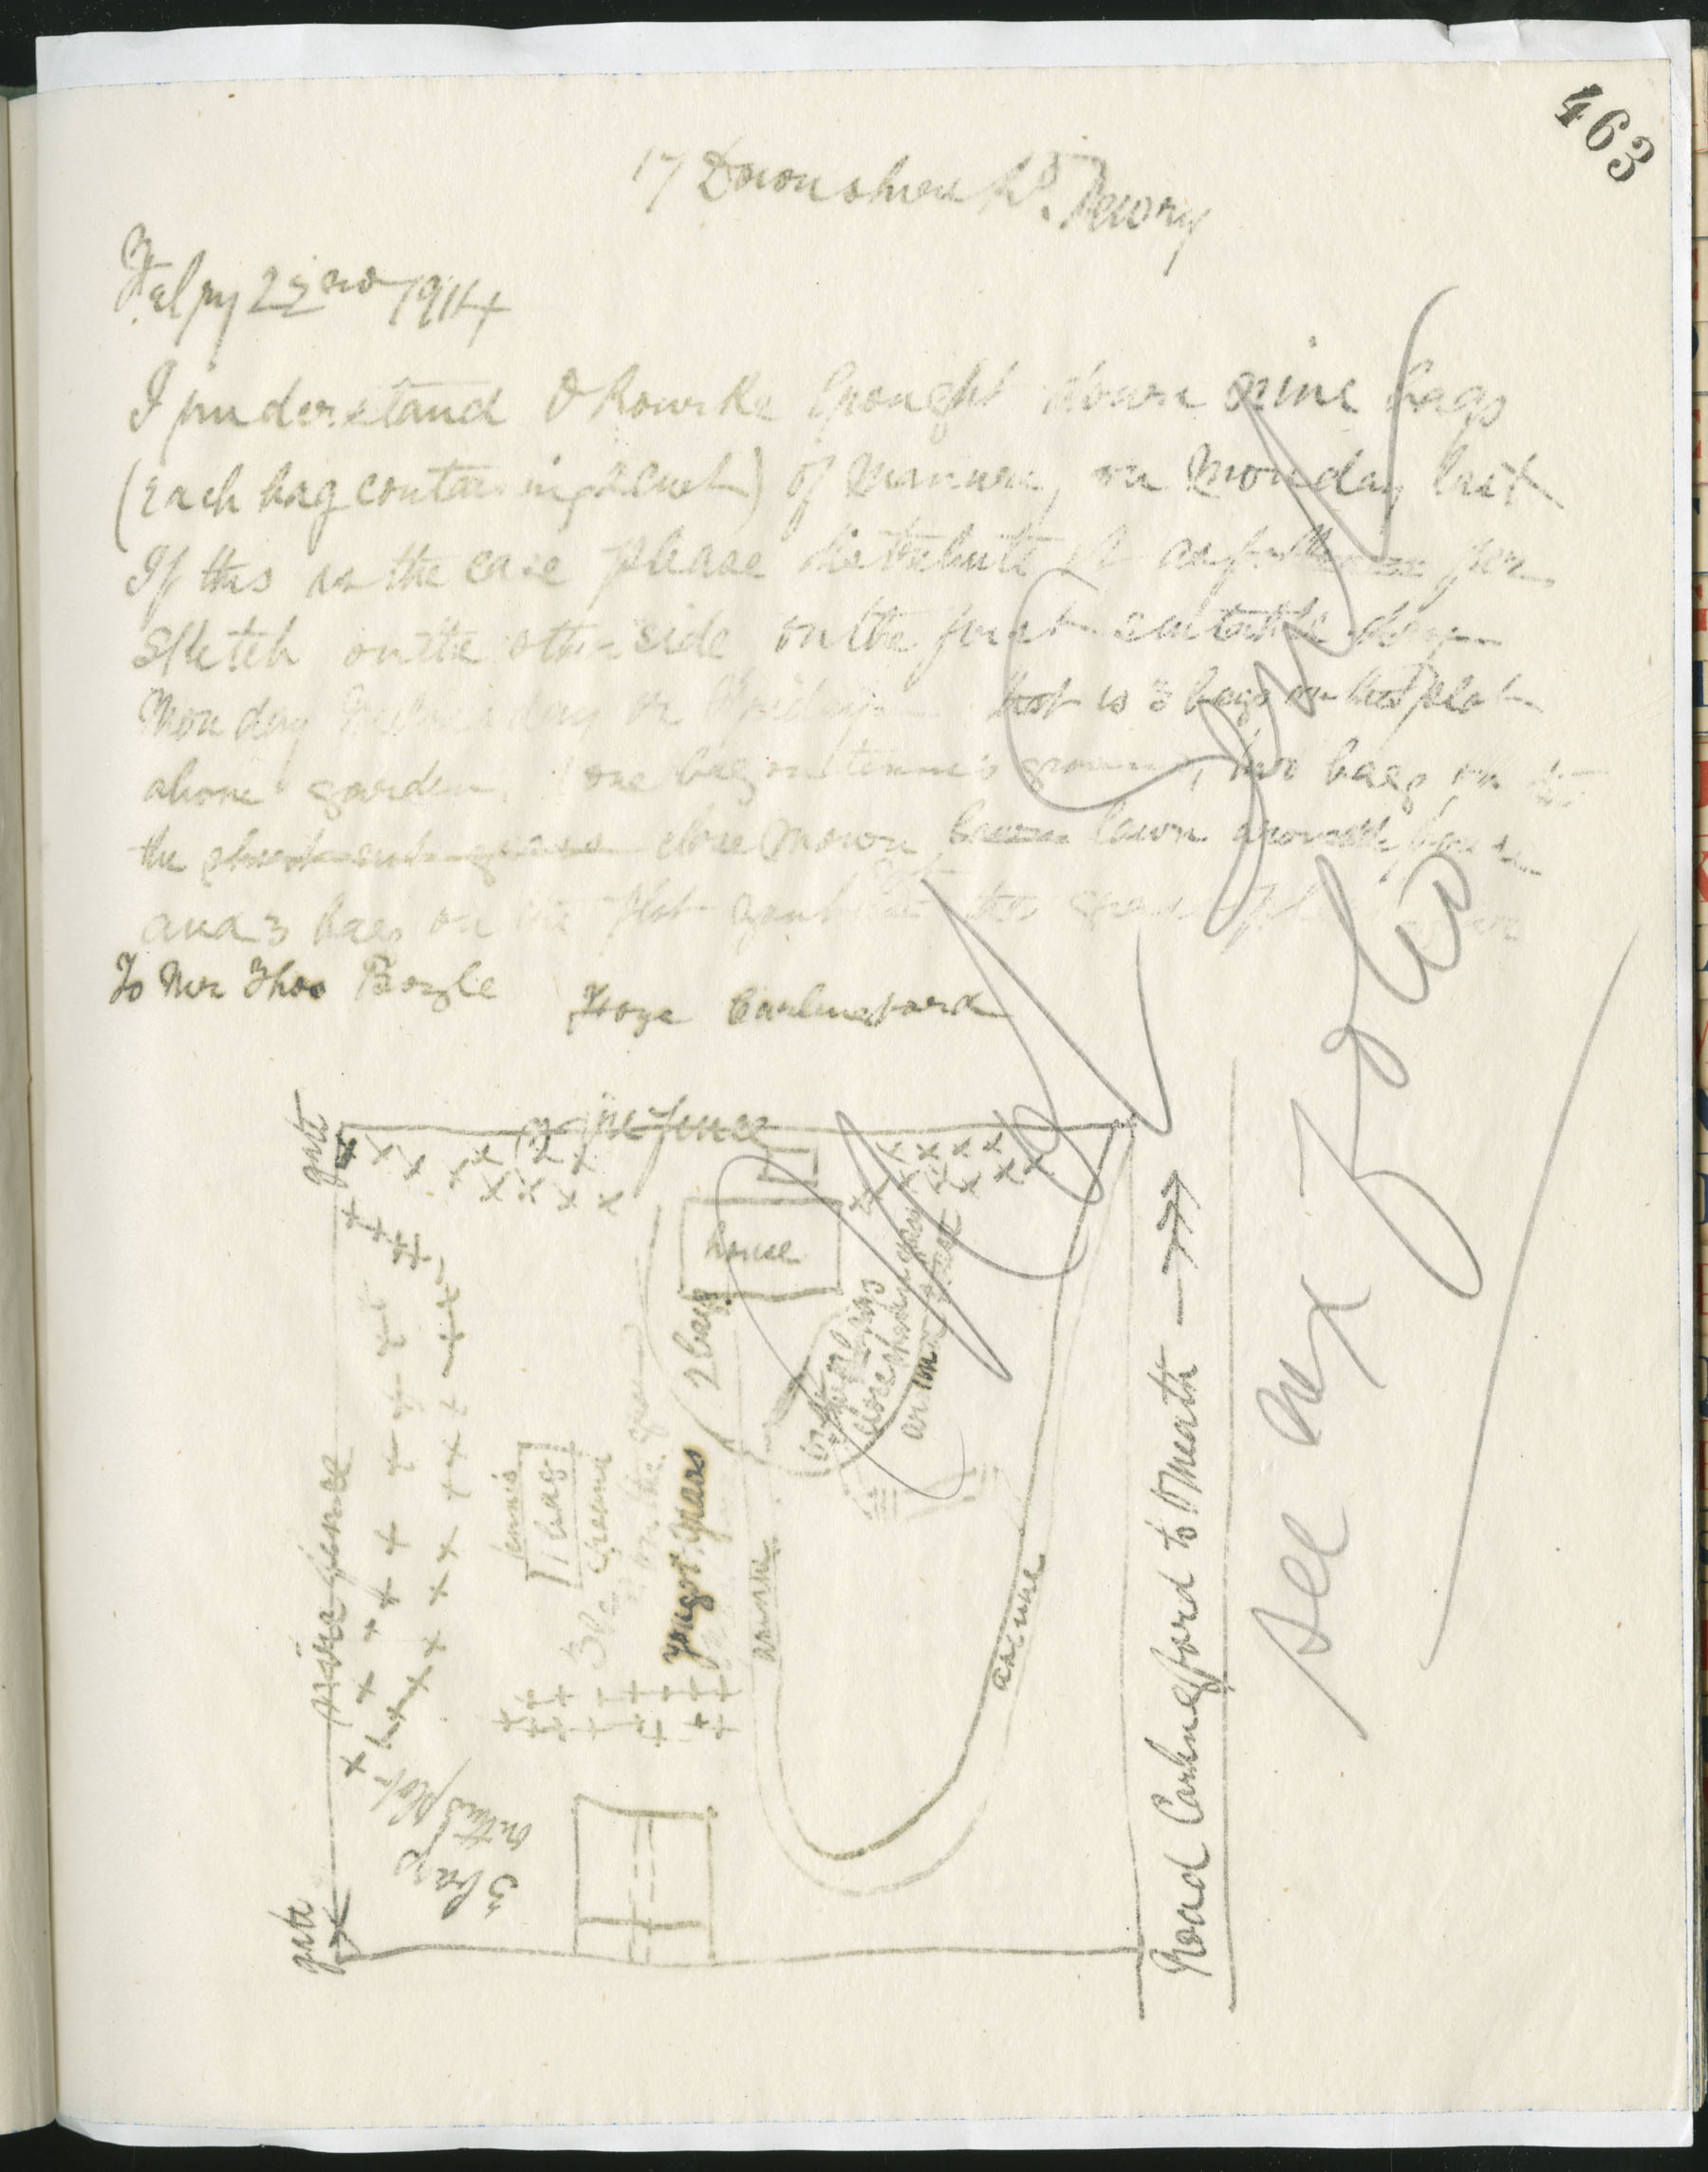 463
17 Downshire Rd. Newry
Feby 22nd 1914
I understand O Rourke brought down nine bags
(each bag containing 2 cwt) of manure, on Monday last
If this is the case please distribute it as follows per
sketch on the other side on the first suitable day
Monday Wednesday or Friday that is 3 bags on the plot
above garden, one bag on tennis ground, two bags on
the short cut grass close mown lawn around house
and 3 bags on the plot
To Mr Thos Boyle
Grange Carlingford
gate
wire fence
house
2 bags
on the grass
close
around
wire fence
tennis
1 bag
ground
on the
young grass
avenue
avenue
3 bags
on this plot
gate
Road Carlingford to Omeath
See next